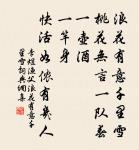 浪花有意千里雪
桃花無言一隊春
一壺酒
一竿身
快活如儂有幾人
李煜漁父浪花有意千
里雪